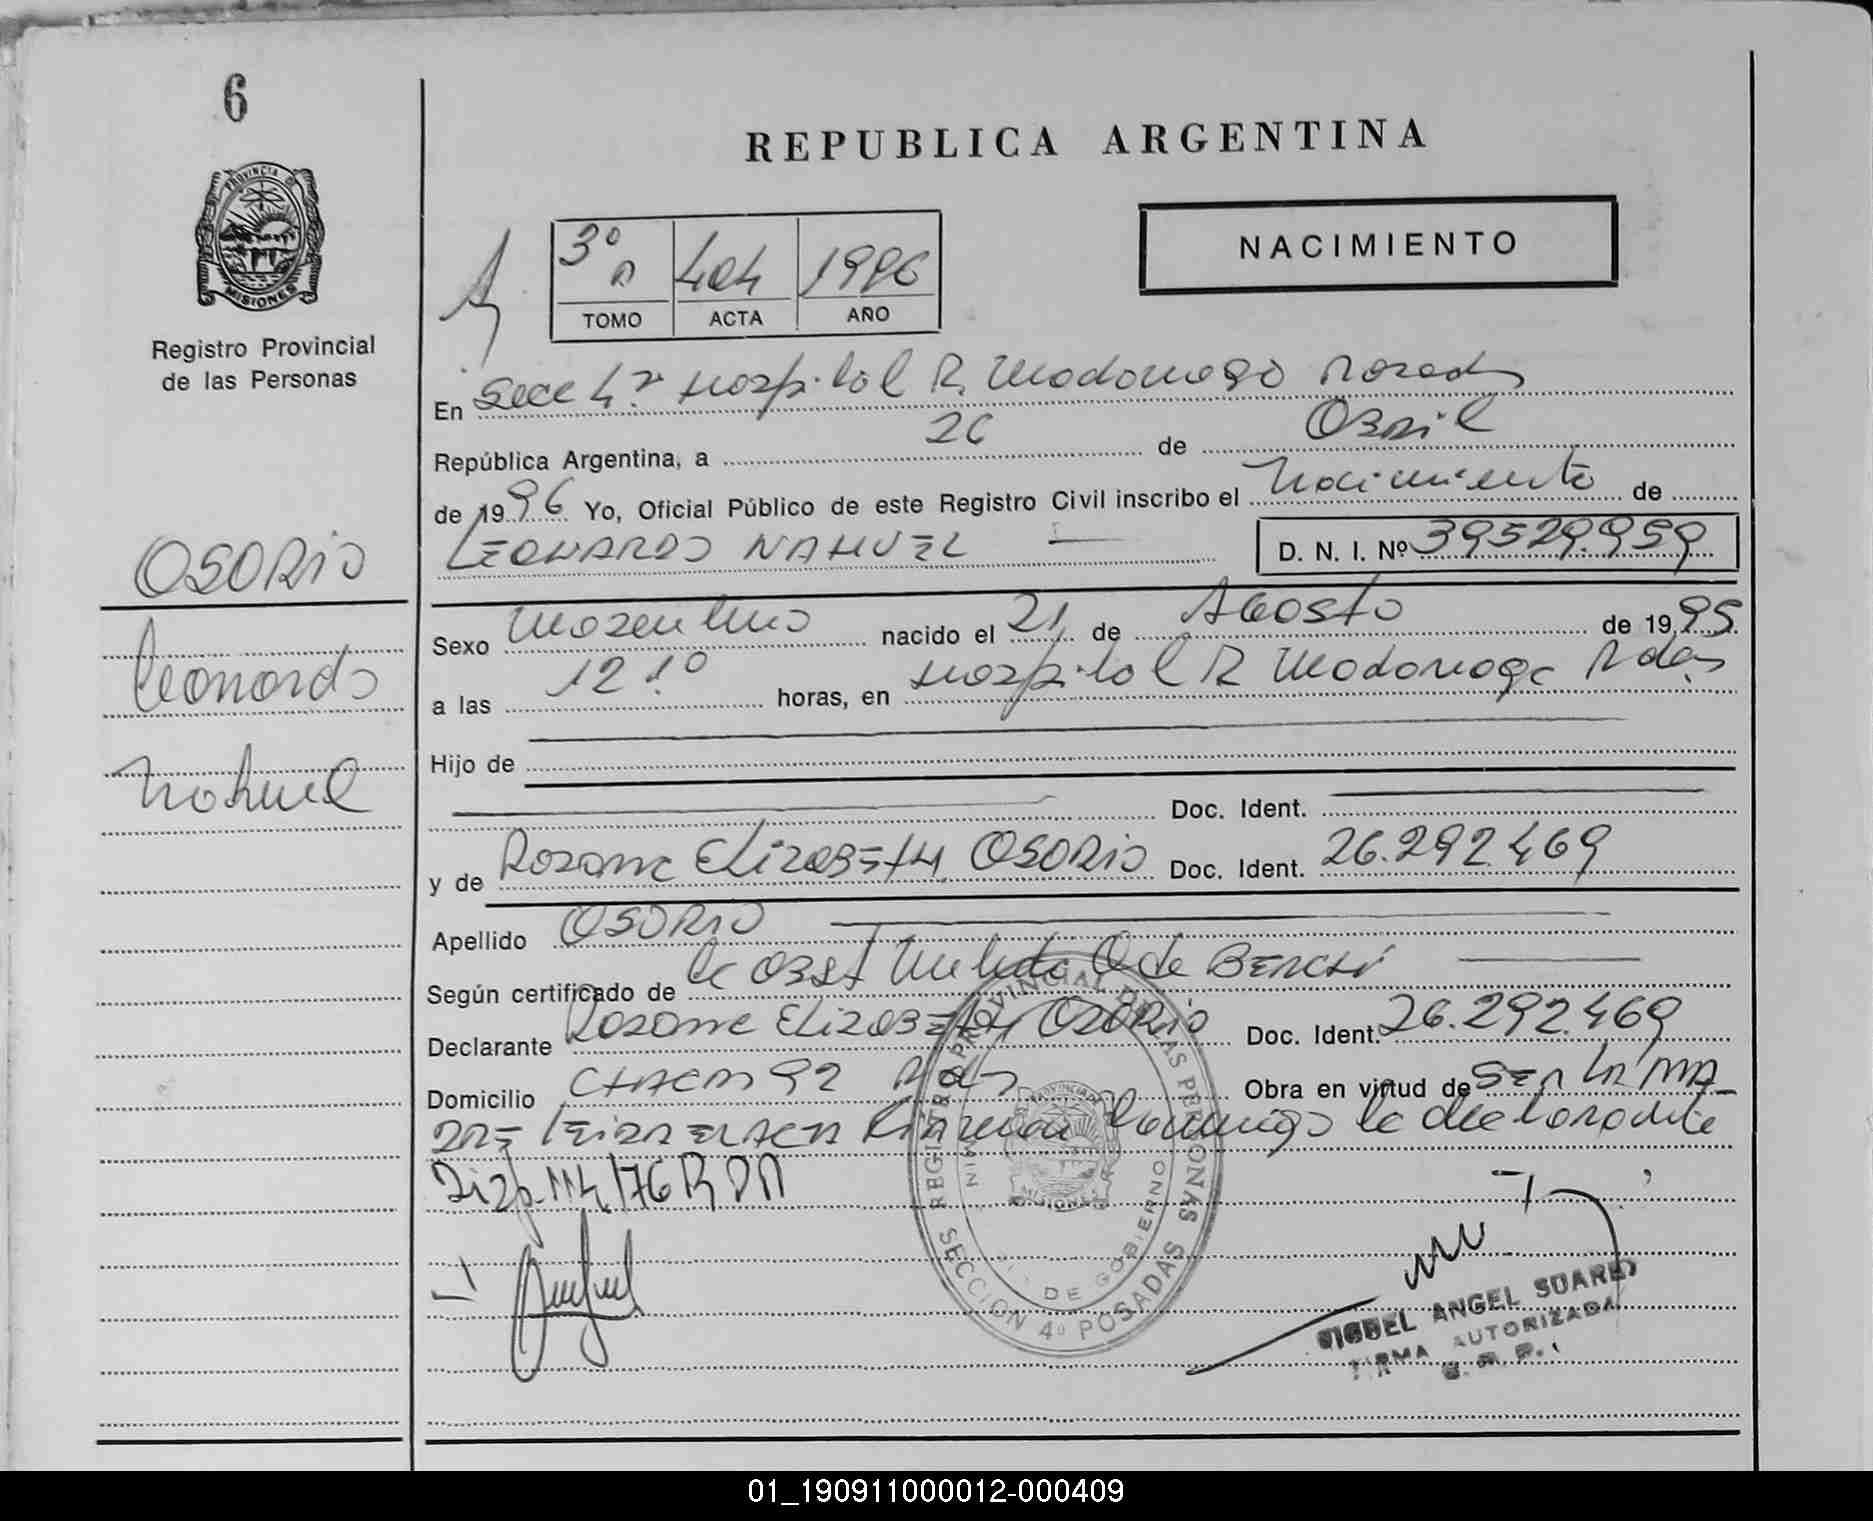 6
REPUBLICA ARGENTINA
PROVINCIA DE
MISIONES
Registro Provincial
de las Personas
NACIMIENTO
3º A 404 1996
TOMO ACTA AÑO
En Secc 4ª Hospital R. Madariaga Posadas
República Argentina, a 26 de Abril
de 1996 Yo, Oficial Público de este Registro Civil inscribo el Nacimiento de
LEONARDO NAHUEL D. N. I. Nº 39529.959
OSORIO
Leonardo
Nahuel
Sexo Masculino nacido el 21 de Agosto de 1995
a las 12 1º horas, en Hospital R Madariaga Pdas
Hijo de
Doc. Ident.
y de Rosana Elizabeth OSORIO Doc. Ident. 26.292.469
Apellido OSORIO
Según certificado de la Obst de
Declarante Rosana Elizabeth OSORIO Doc. Ident. 26.292.469
Domicilio CHACRA 92 Pdas Obra en virtud de SER LA MA-
DRE la declarante
Disp. 114/76 R
REGISTRO PROVINCIAL DE LAS PERSONAS
SECCION 4º POSADAS
DE GOBIERNO
PROVINCIA DE
MISIONES
MIGUEL ANGEL SUAREZ
FIRMA AUTORIZADA
01_190911000012-000409